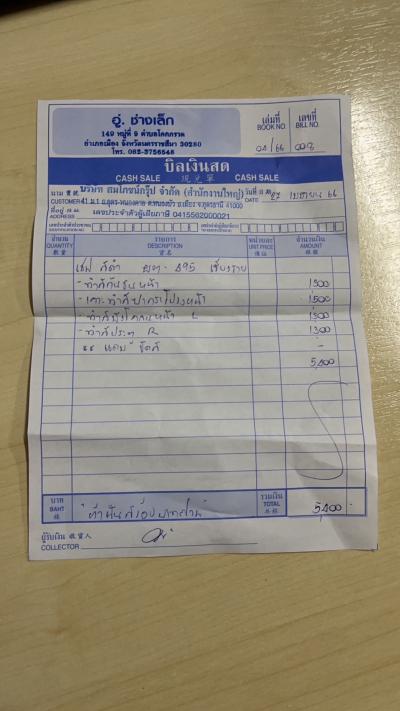 อู่. ช่างเล็ก
149 หมู่ที่ 9 ตำบลโคกกรวด
อำเภอเมือง จังหวัดนครราชสีมา 30280
โทร. 082-3756548
เล่มที่ เลขที่
BOOK NO. BILL NO.
04/66 008
บิลเงินสด
CASH SALE 现兑单 CASH SALE
นาม
CUSTOMER
บริษัท สมโภชน์กรุ๊ป จำกัด (สำนักงานใหญ่)
วันที่
DATE
27 เมษายน 66
ที่อยู่
ADDRESS
41 ม.1 ถ.อุดร-หนองคาย ต.หมากแข้ง อ.เมือง จ.อุดรธานี 41000
เลขประจำตัวผู้เสียภาษี 0415562000021
จำนวน รายการ หน่วยละ จำนวนเงิน
QUANTITY DESCRIPTION UNIT PRICE AMOUNT
สีดำ 895 เชียงราย
-ทำสีกันชนหน้า 1,300
-เคาะทำสีฝากระโปรงหน้า 1,500
-ทำสีบังโคลนหน้า L 1,300
-ทำสีประตู R 1,300
-
5,400
บาท
BAHT
"ห้าพันสี่ร้อยบาทถ้วน"
รวมเงิน
TOTAL
5,400
ผู้รับเงิน
COLLECTOR